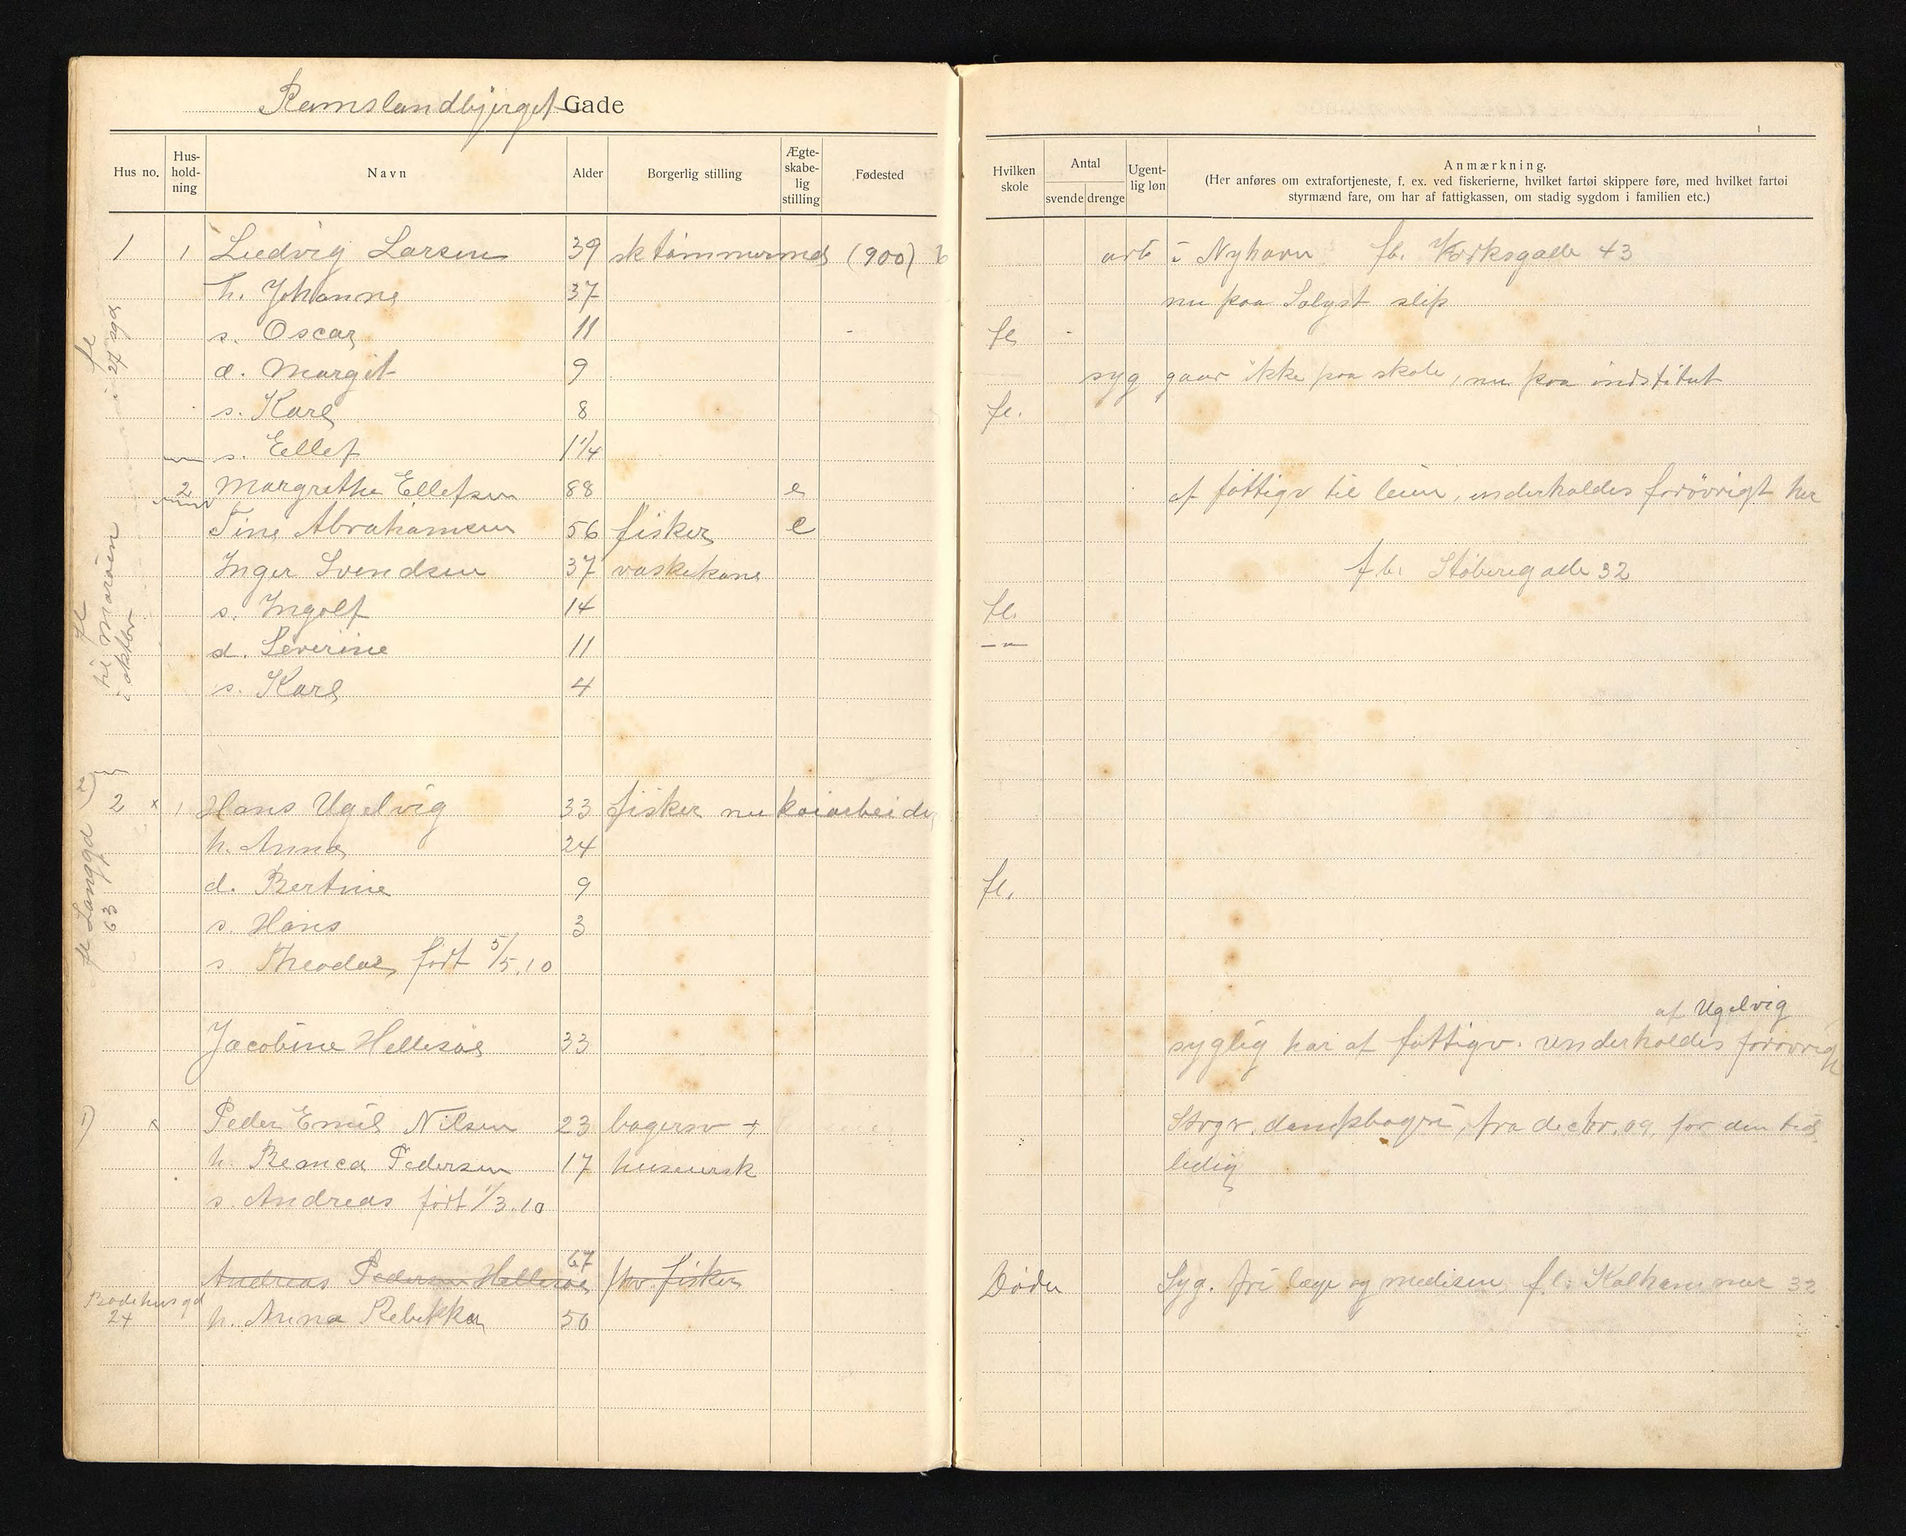 Ramslandbjerget Gade
Hus no. Hus-hold-ning Navn Alder Borgerlig stilling Ægte-skabe-lig stilling Fødested
Hvilken skole Antal svende drenge Ugent-lig løn Anmærkning.
(Her anføres om extrafortjeneste, f. ex. ved fiskerierne, hvilket fartøi skippere føre, med hvilket fartøi
styrmænd fare, om har af fattigkassen, om stadig sygdom i familien etc.)
1 1 Ludvig Larsen 39 sktømmermd (900) arb i Nyhavn fb. Kirksgade 43
h. Johanne 37 nu paa Solyst slip
s. Oscar 11 fl
d. Margit 9 syg gaar ikke paa skole, nu paa institut
s. Karl 8 fl.
s. Ellef 1 1/4
2 Margrethe Ellefsen 88 e af fattigv til leien, underholdes forøvrigt her
Tine Abrahamsen 56 fisker e
Inger Svendsen 37 vaskekone fb. Støberigade 32
s. Ingolf 14 fl.
d. Severine 11 —"—
s. Karl 4
fl i 27 ggd
fl til Marøen i oktbr
2 x 1 Hans Ugelvig 33 fisker nu kaiarbeider
h. Anna 24
d. Bertine 9 fl.
s. Hans 3
s Theodor født 5/5.10
fl Langgd 63
2)
af Ugelvig
Jacobine Hellesøe 33 syglig har af fattigv. underholdes forøvrigt
1) x Peder Emil Nilsen 23 bagersv + Strgr. dampbageri, fra decbr. 09. for den tid
h. Bianca Pedersen 17 husmersk ledig
s. Andreas født 1/3.10
Andreas Pedersen Hellesøe 67 fhv. fisker Døde Syg. fri læge og medisin fl. Kalhammer 32
Badehusgd 24 h. Anna Rebekka 50